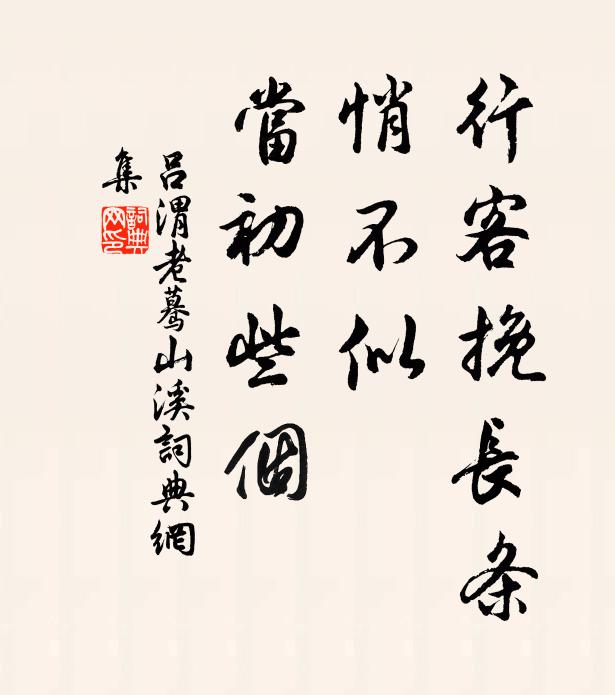 行客挽長条
悄不似
當初些個
吕渭老驀山溪詞典網
集
詞典
网印